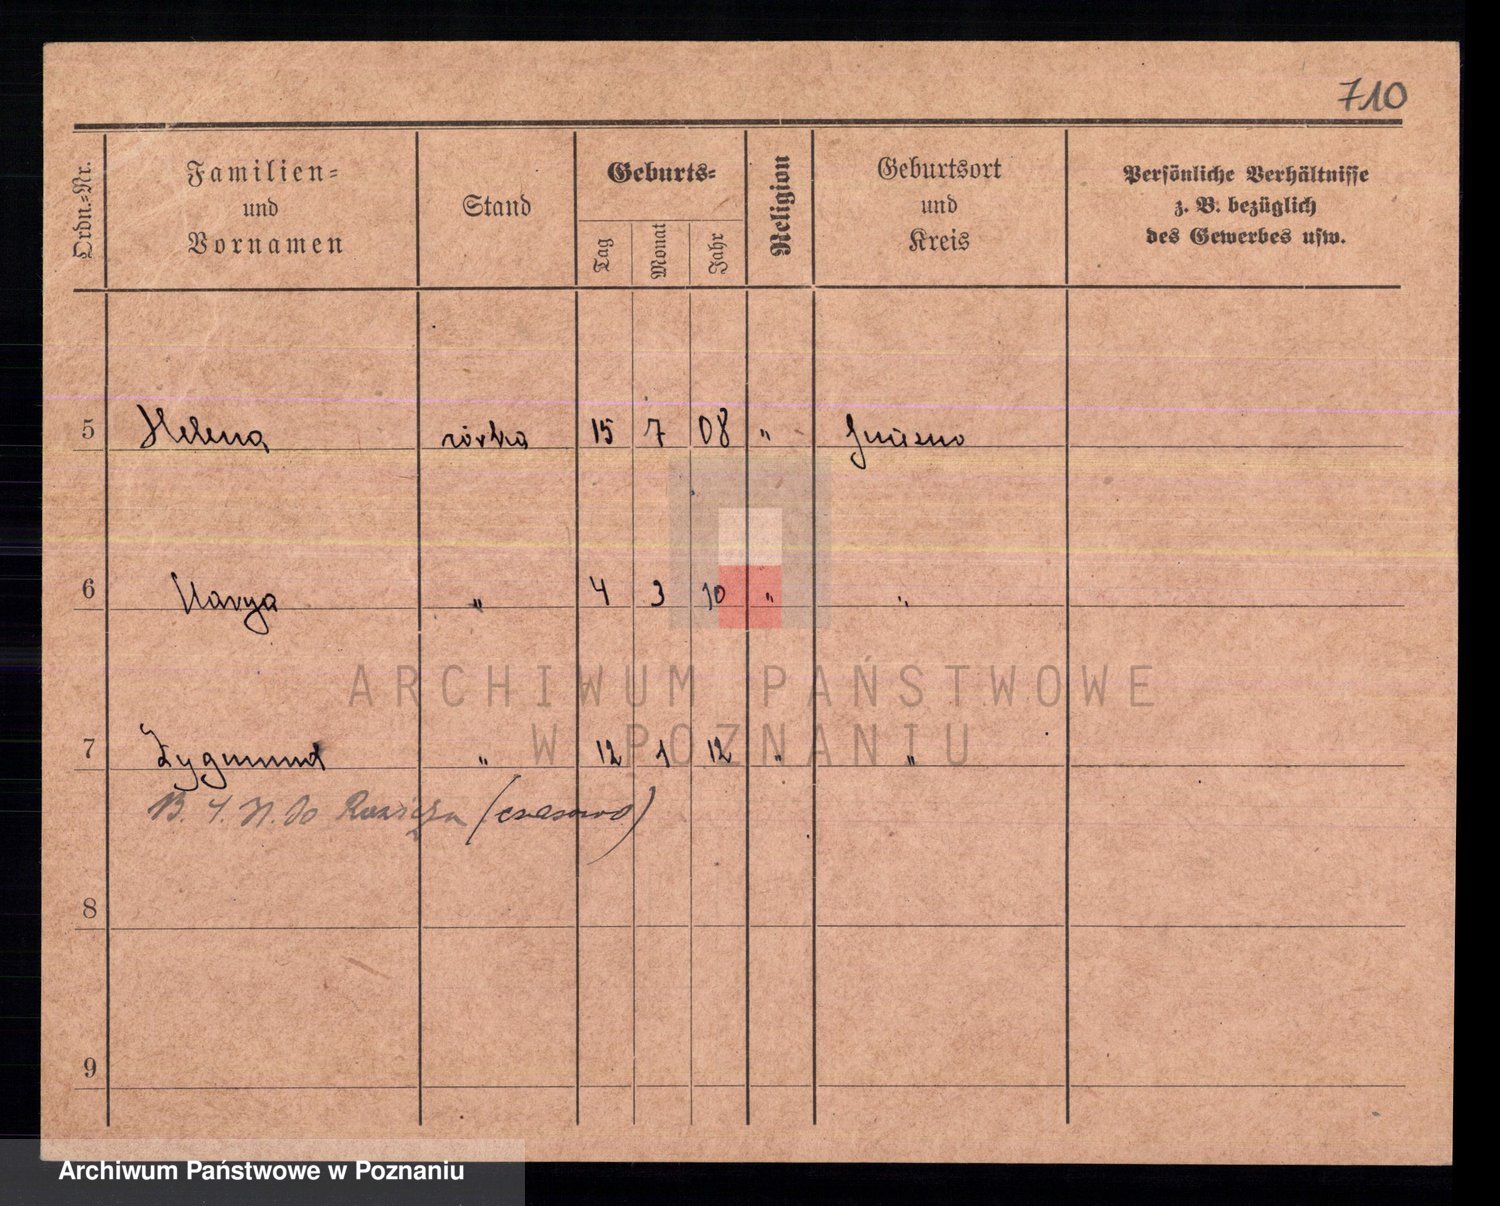 710
Ordn.-Nr.
Familien-
und
Vornamen
Stand
Geburts-
Tag
Monat
Jahr
Religion
Geburtsort
und
Kreis
Persönliche Verhältnisse
z. B. bezüglich
des Gewerbes usw.
5 Helena córka 15 7 08 " Gniezno
6 Marya " 4 3 10 " "
7 Zygmund " 12 1 12 " "
do (czasowo)
8
9
ARCHIWUM PAŃSTWOWE
W POZNANIU
Archiwum Państwowe w Poznaniu